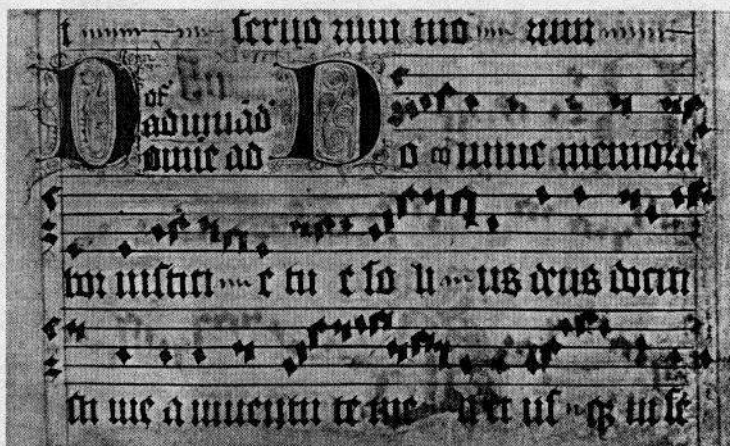 i seruo rum tuo rum
of'
adiuuad'
Domie ad
Do mine memora
bor iustiti e tu e so li us deus docui
sti me a iuuentu te me a et us qȝ in se